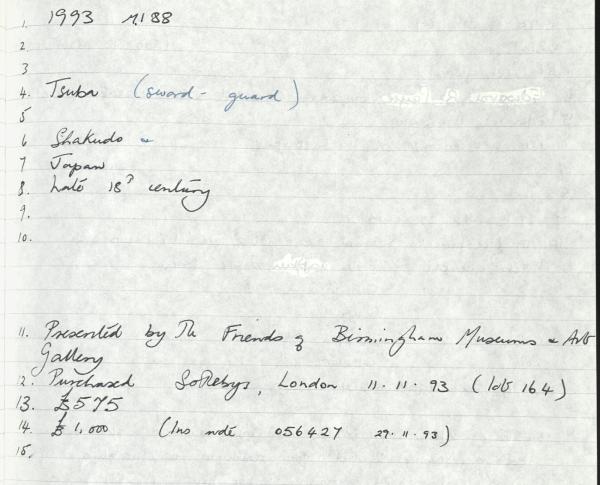 1. 1993 M188
2.
3
4. Tsuba (sword-guard)
5
6 Shakudo
7 Japan
8. Late 18th century
9.
10.
11. Presented by The Friends of Birmingham Museums & Art
Gallery
2. Purchased Sothebys, London 11.11.93 (lot 164)
13. £575
14. £1,000 (Ins note 056427 29.11.93)
15.